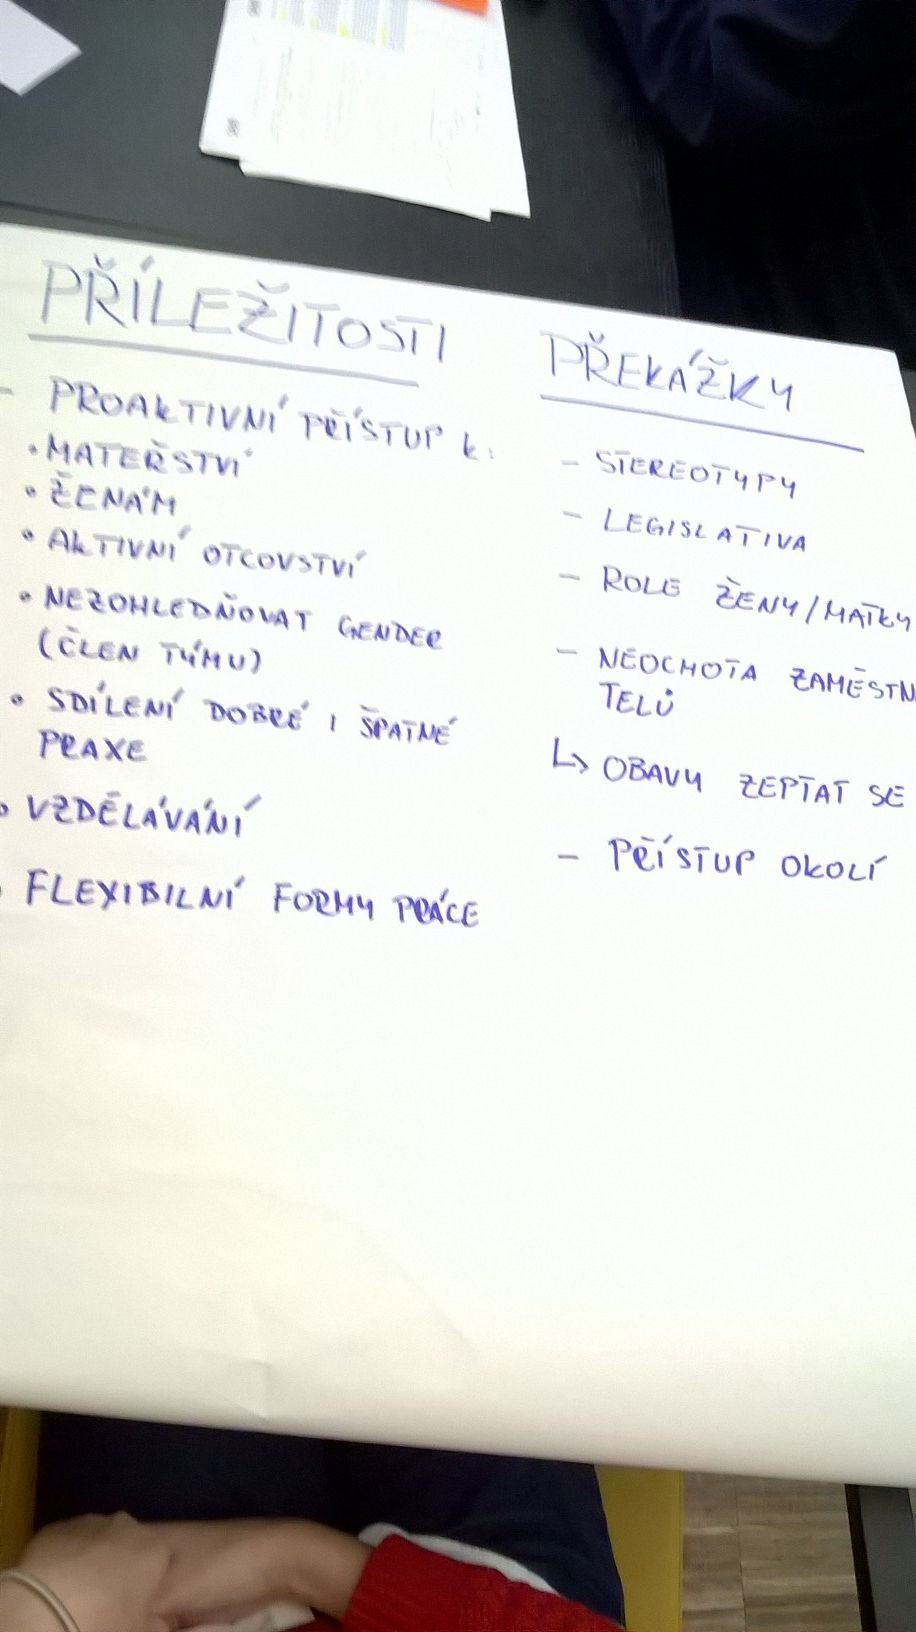 PŘÍLEŽITOSTI
- PROAKTIVNÍ PŘÍSTUP K:
• MATEŘSTVÍ
• ŽENÁM
• AKTIVNÍ OTCOVSTVÍ
• NEZOHLEDŇOVAT GENDER
(ČLEN TÝMU)
• SDÍLENÍ DOBRÉ I ŠPATNÉ
PRAXE
• VZDĚLÁVÁNÍ
• FLEXIBILNÍ FORMY PRÁCE
PŘEKÁŽKY
- STEREOTYPY
- LEGISLATIVA
- ROLE ŽENY/MATKY
- NEOCHOTA ZAMĚSTN
TELŮ
↳ OBAVY ZEPTAT SE
- PŘÍSTUP OKOLÍ